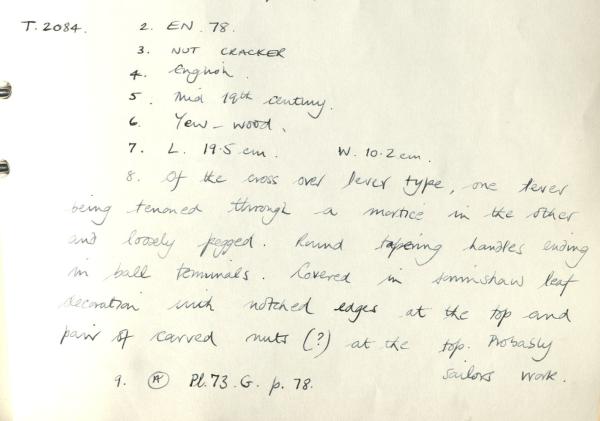 T.2084. 2. EN. 78.
3. NUT CRACKER
4. English.
5. Mid 19th century.
6. Yew-wood.
7. L. 19.5 cm. W. 10.2 cm.
8. Of the cross over lever type, one lever
being tenoned through a mortice in the other
and loosely pegged. Round tapering handles ending
in ball terminals. Covered in scrimshaw leaf
decoration with notched edges at the top and
pair of carved nuts (?) at the top. Probably
sailors work.
9. Pl. 73. G. p. 78.